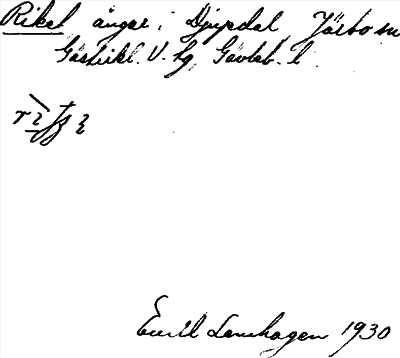 Rikel ängar i Djupdal, Järbo sn
Gästrikl. V. hg, Gävleb. l.
Emil Lanhagen 1930